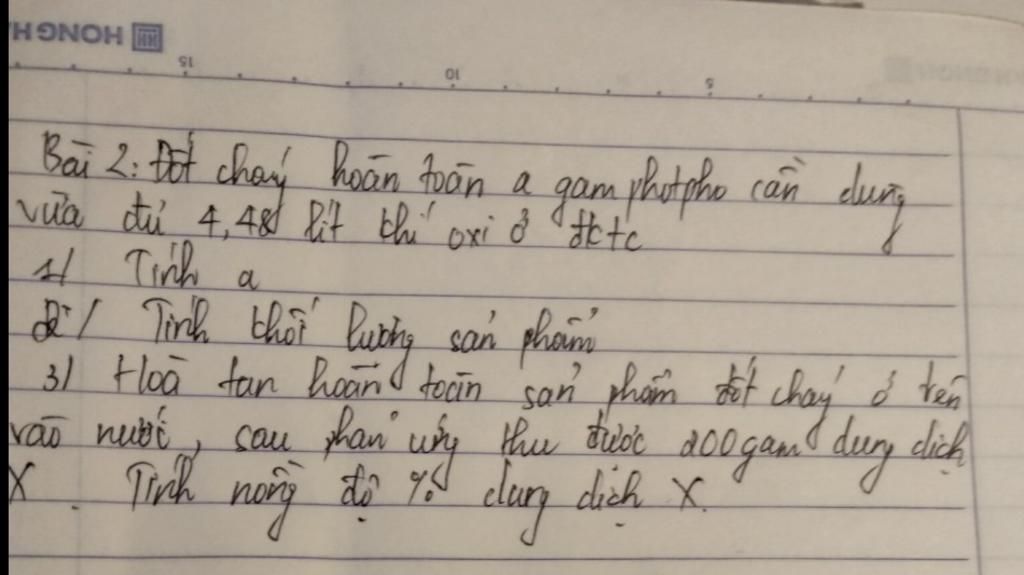 HONG HA
15 10 5
Bài 2: Đốt cháy hoàn toàn a gam photpho cần dùng
vừa đủ 4,48 lít khí oxi ở đktc
1/ Tính a
2/ Tính khối lượng sản phẩm
3/ Hoà tan hoàn toàn sản phẩm đốt cháy ở trên
vào nước, sau phản ứng thu được 200gam dung dịch
X. Tính nồng độ % dung dịch X.